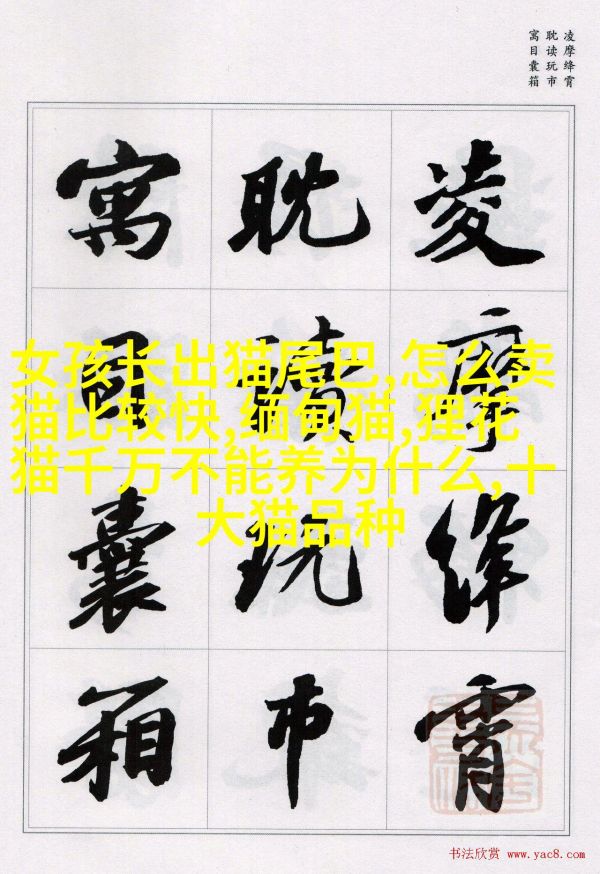 凌摩绛霄
耽读玩市
寓目囊箱
凌摩絳霄
耽讀玩市
寓目囊箱
女孩长出猫尾巴,怎么卖
猫比较快,缅甸猫,狸花
猫千万不能养为什么,十
大猫品种
书法欣赏 www.yac8.com